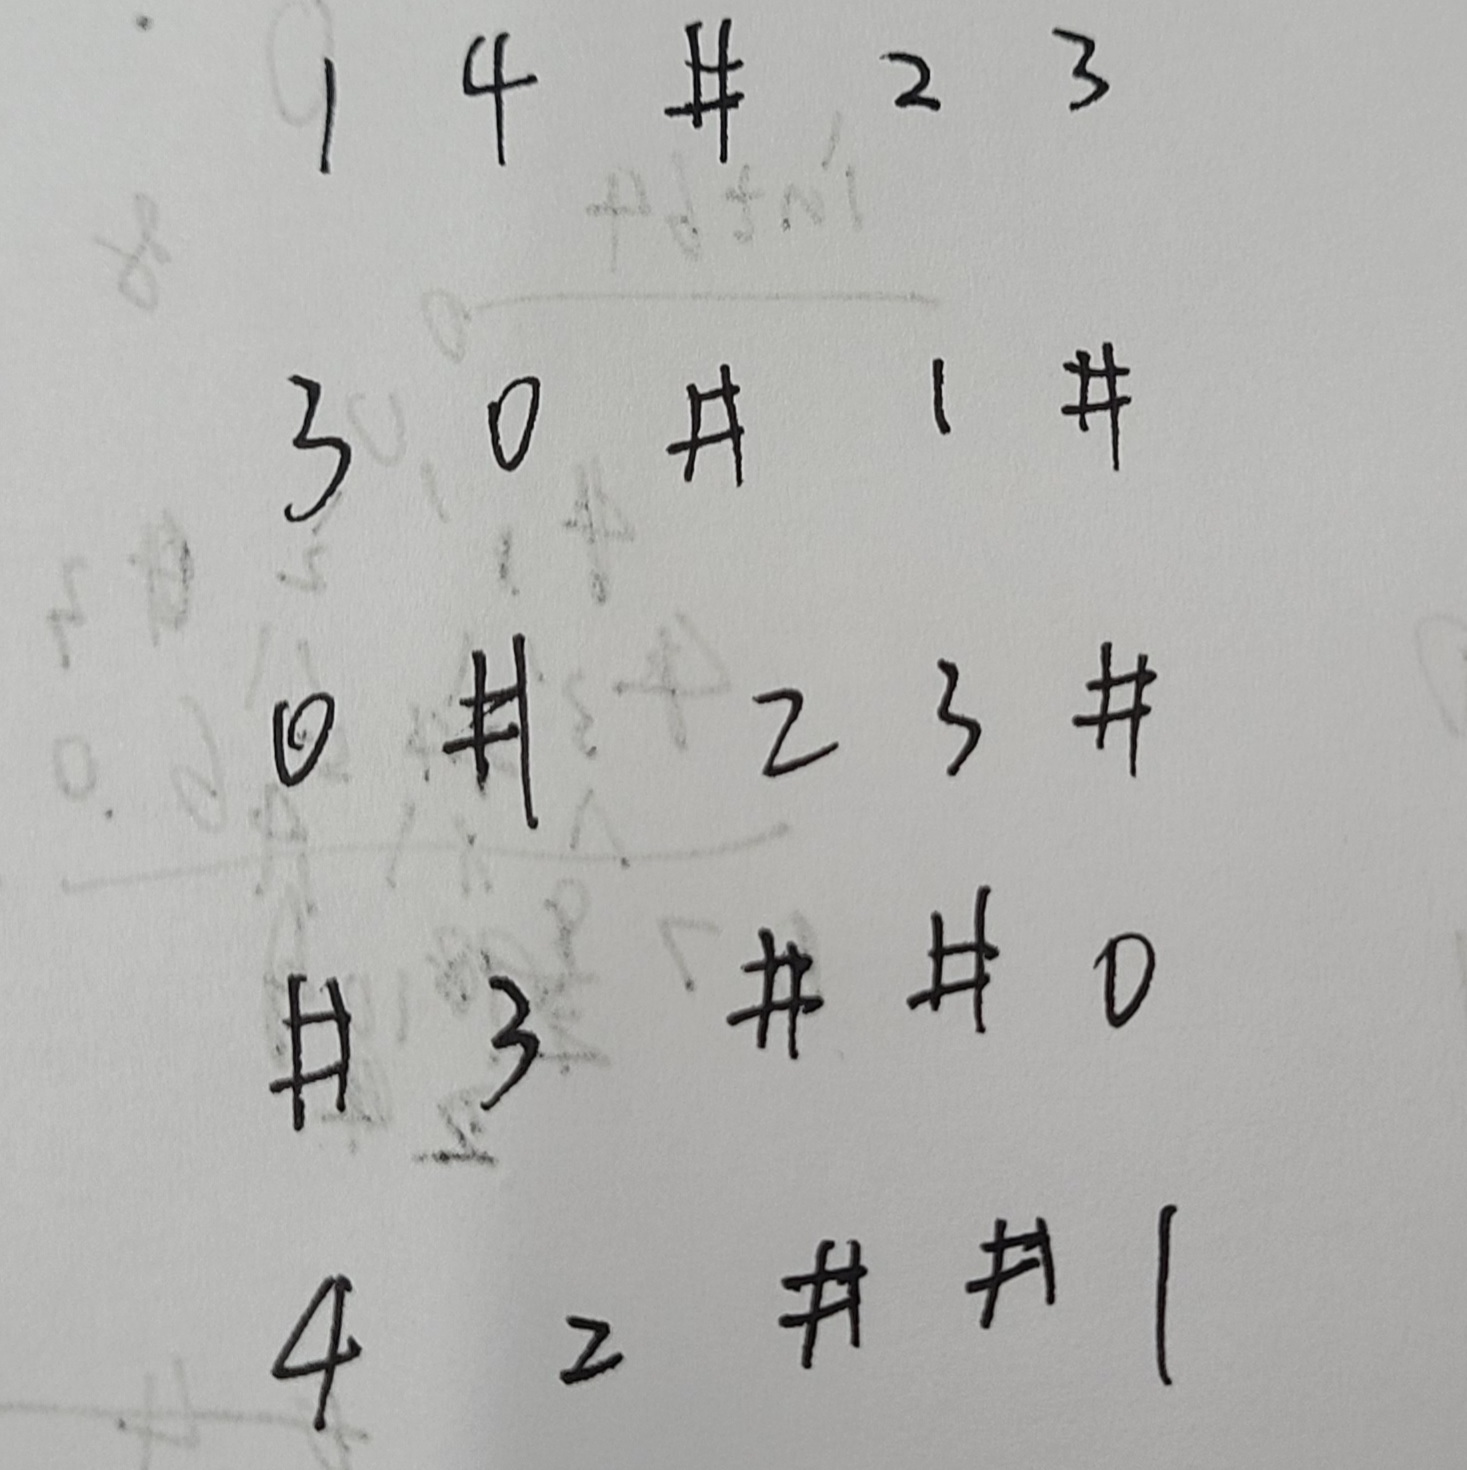 1 4 # 2 3
3 0 # 1 #
0 # 2 3 #
# 3 # # 0
4 2 # # 1